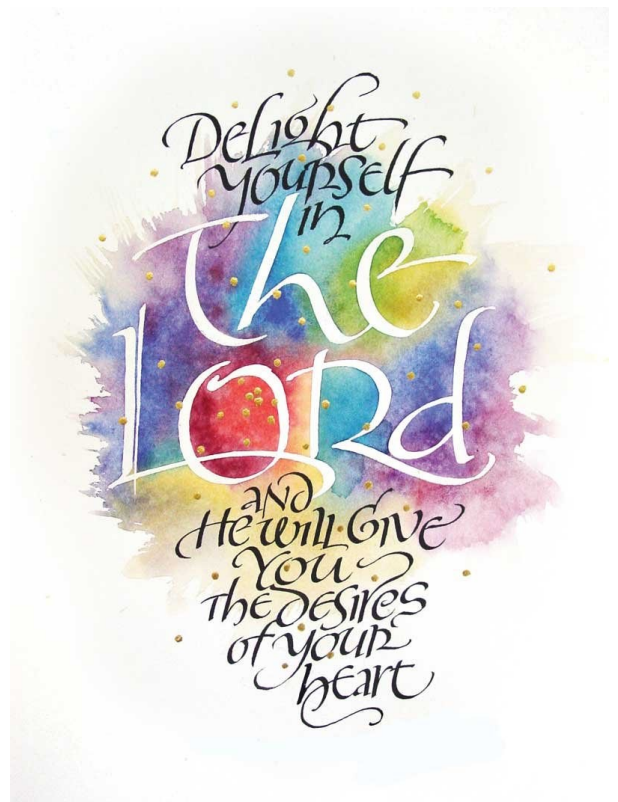 Delight
yourself
in
The
Lord
and
He will Give
You
The Desires
of your
heart